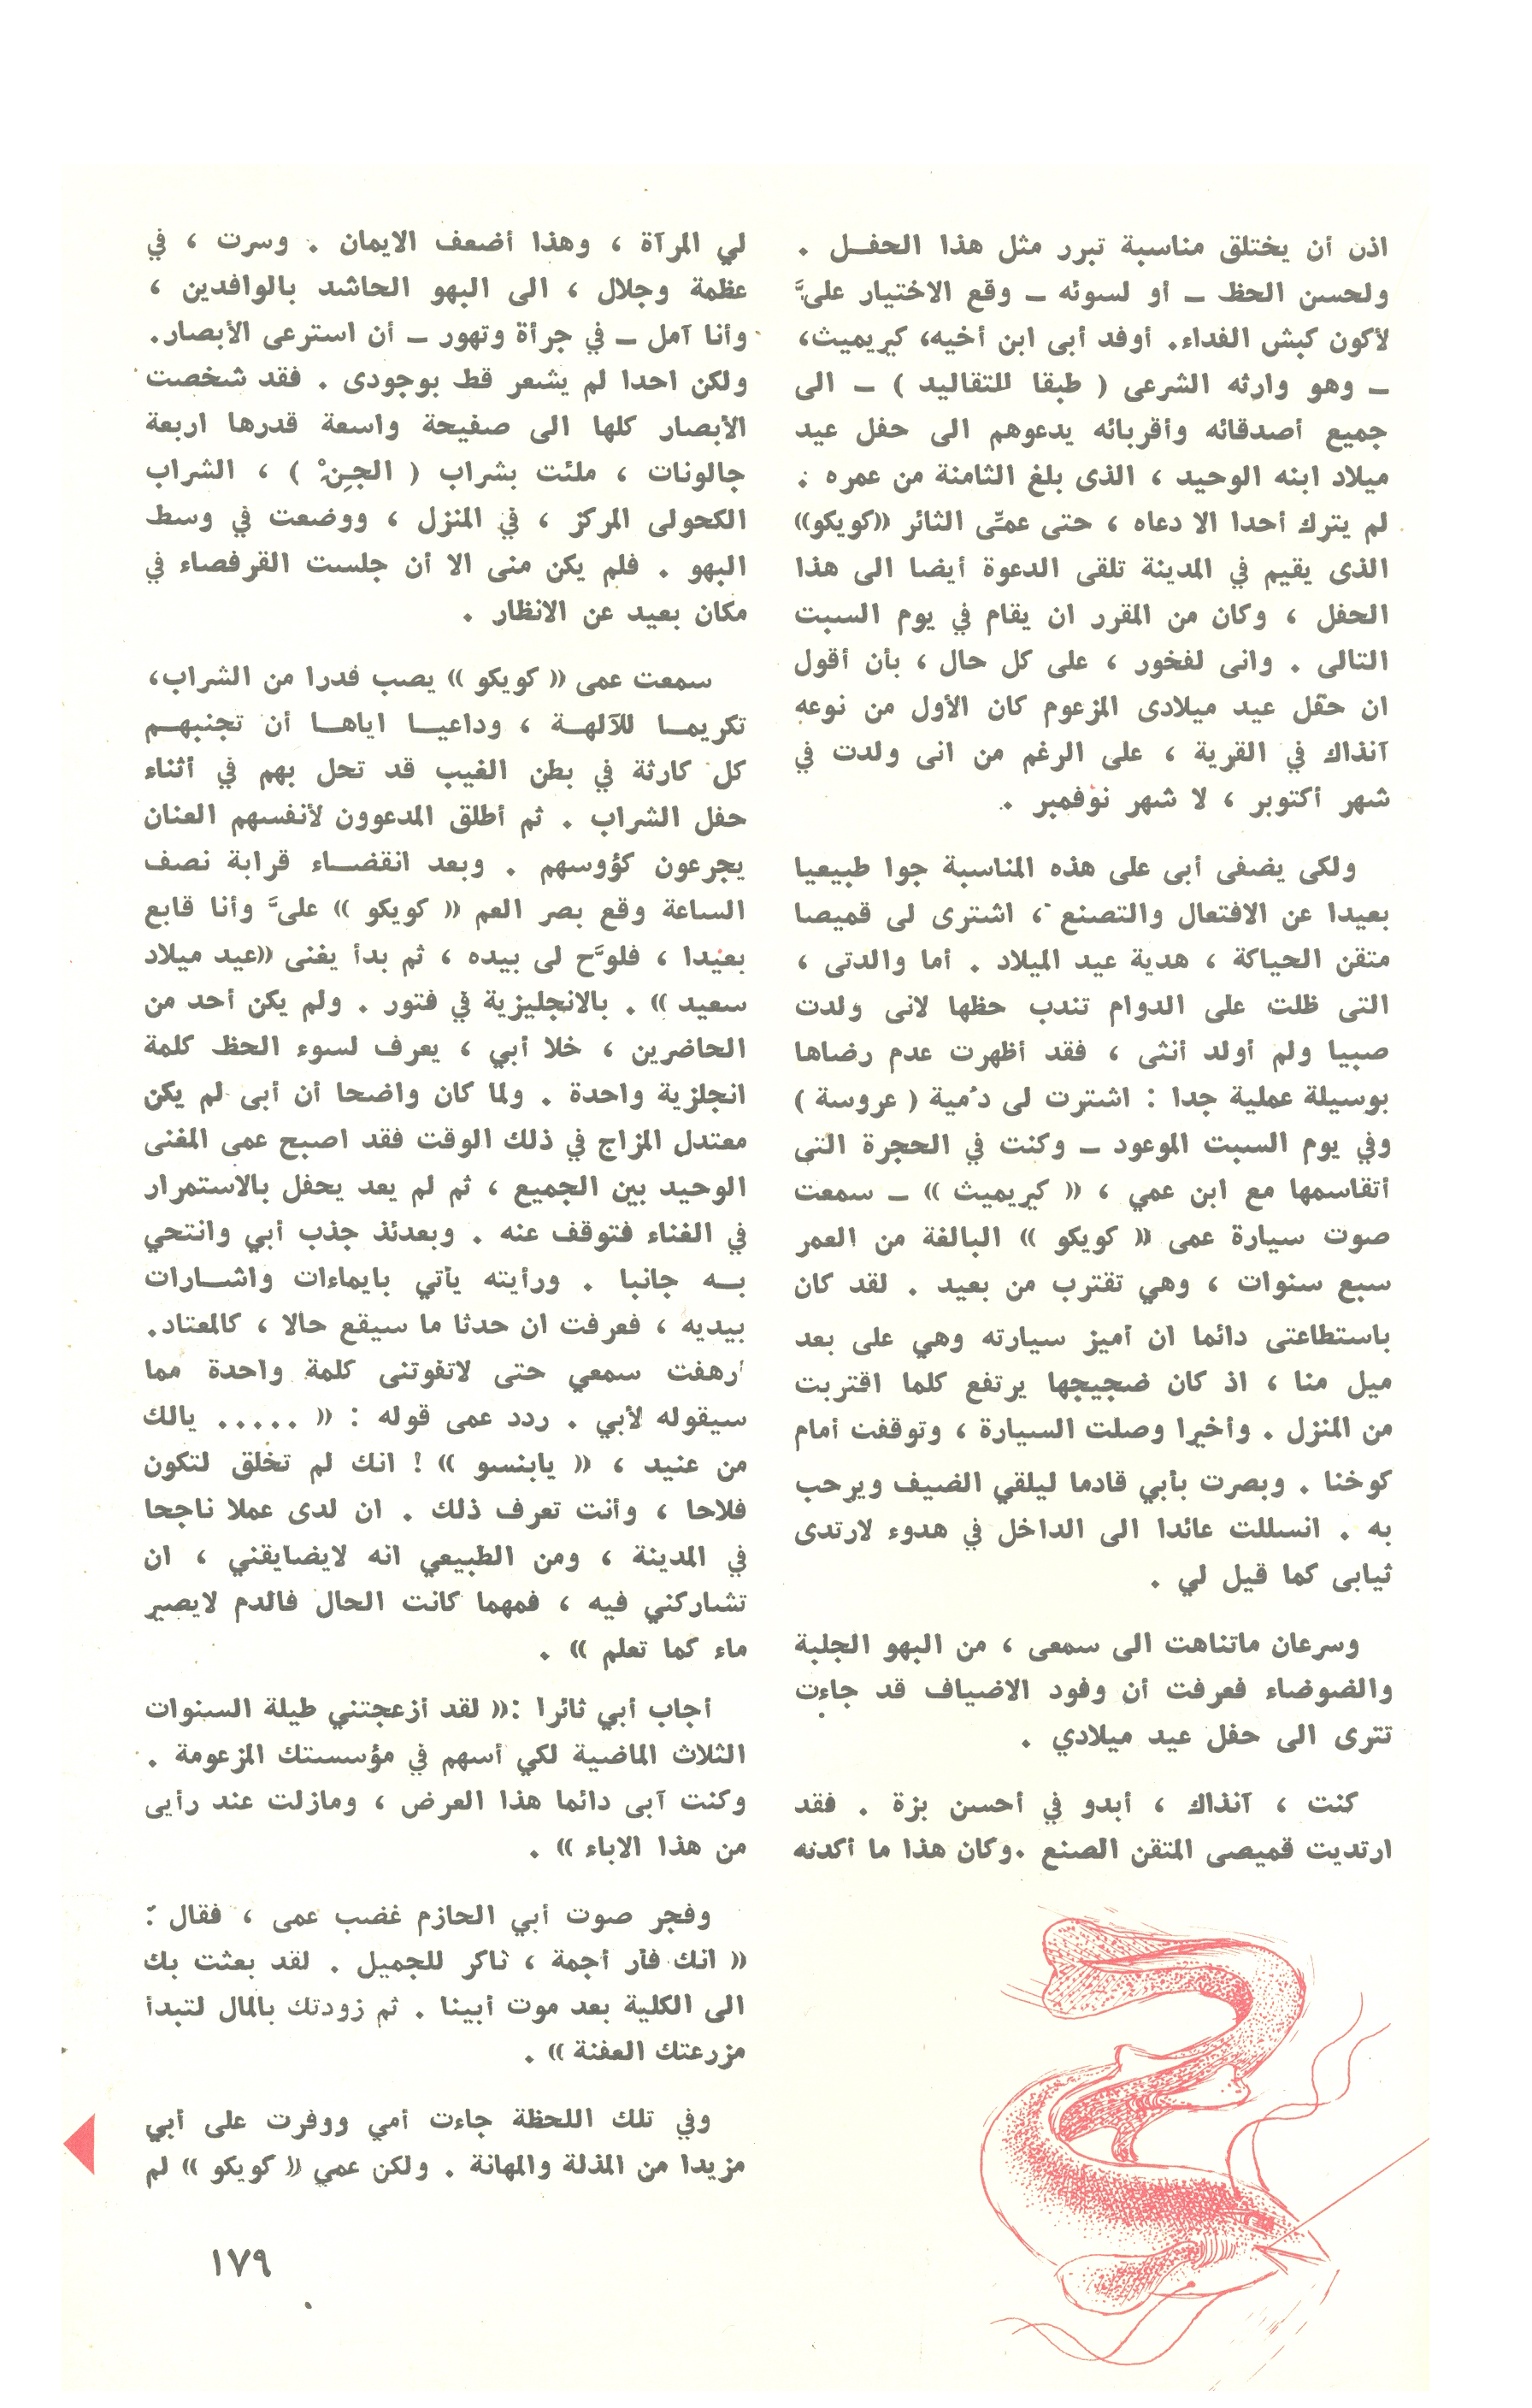 اذن أن يختلق مناسبة تبرر مثل هذا الحفـل .
ولحسن الحظ ــ أو لسوئه ــ وقع الاختيار علىَّ
لأكون كبش الفداء. أوفد أبى ابن أخيه، كيريميث،
ــ وهو وارثه الشرعى ( طبقا للتقاليد ) ــ الى
جميع أصدقائه وأقربائه يدعوهم الى حفل عيد
ميلاد ابنه الوحيد ، الذى بلغ الثامنة من عمره .
لم يترك أحدا الا دعاه ، حتى عمتِّى الثائر «كويكو»
الذى يقيم في المدينة تلقى الدعوة أيضا الى هذا
الحفل ، وكان من المقرر ان يقام في يوم السبت
التالى . وانى لفخور ، على كل حال ، بأن أقول
ان حفل عيد ميلادى المزعوم كان الأول من نوعه
آنذاك في القرية ، على الرغم من انى ولدت في
شهر أكتوبر ، لا شهر نوفمبر .
ولكى يضفى أبى على هذه المناسبة جوا طبيعيا
بعيدا عن الافتعال والتصنع ، اشترى لى قميصا
متقن الحياكة ، هدية عيد الميلاد . أما والدتى ،
التى ظلت على الدوام تندب حظها لانى ولدت
صبيا ولم أولد أنثى ، فقد أظهرت عدم رضاها
بوسيلة عملية جدا : اشترت لى دُمية ( عروسة )
وفي يوم السبت الموعود ــ وكنت في الحجرة التى
أتقاسمها مع ابن عمي ، « كيريميث » ــ سمعت
صوت سيارة عمى « كويكو » البالغة من العمر
سبع سنوات ، وهي تقترب من بعيد . لقد كان
باستطاعتى دائما ان أميز سيارته وهي على بعد
ميل منا ، اذ كان ضجيجها يرتفع كلما اقتربت
من المنزل . وأخيرا وصلت السيارة ، وتوقفت أمام
كوخنا . وبصرت بأبي قادما ليلقي الضيف ويرحب
به . انسللت عائدا الى الداخل في هدوء لارتدى
ثيابى كما قيل لي .
وسرعان ماتناهت الى سمعى ، من البهو الجلبة
والضوضاء فعرفت أن وفود الاضياف قد جاءت
تترى الى حفل عيد ميلادي .
كنت ، آنذاك ، أبدو في أحسن بزة . فقد
ارتديت قميصى المتقن الصنع .وكان هذا ما أكدته
لي المرآة ، وهذا أضعف الايمان . وسرت ، في
عظمة وجلال ، الى البهو الحاشد بالوافدين ،
وأنا آمل ــ في جرأة وتهور ــ أن استرعى الأبصار.
ولكن احدا لم يشعر قط بوجودى . فقد شخصت
الأبصار كلها الى صفيحة واسعة قدرها اربعة
جالونات ، ملئت بشراب ( الجِنْ ) ، الشراب
الكحولى المركز ، في المنزل ، ووضعت في وسط
البهو . فلم يكن منى الا أن جلست القرفصاء في
مكان بعيد عن الانظار .
سمعت عمى « كويكو » يصب قدرا من الشراب،
تكريمـا للآلهـة ، وداعيـا اياهـا أن تجنبهـم
كل كارثة في بطن الغيب قد تحل بهم في أثناء
حفل الشراب . ثم أطلق المدعوون لأنفسهم العنان
يجرعون كؤوسهم . وبعد انقضـاء قرابة نصف
الساعة وقع بصر العم « كويكو » علىَّ وأنا قابع
بعيدا ، فلوَّح لى بيده ، ثم بدأ يغنى «عيد ميلاد
سعيد » . بالانجليزية في فتور . ولم يكن أحد من
الحاضرين ، خلا أبي ، يعرف لسوء الحظ كلمة
انجلزية واحدة . ولما كان واضحا أن أبى لم يكن
معتدل المزاج في ذلك الوقت فقد اصبح عمى المغنى
الوحيد بين الجميع ، ثم لم يعد يحفل بالاستمرار
في الغناء فتوقف عنه . وبعدئذ جذب أبي وانتحي
بـه جانبا . ورأيته يأتي بايماءات واشـارات
بيديه ، فعرفت ان حدثا ما سيقع حالا ، كالمعتاد.
أرهفت سمعي حتى لاتفوتنى كلمة واحدة مما
سيقوله لأبي . ردد عمى قوله : « ..... يالك
من عنيد ، « يابنسو » ! انك لم تخلق لتكون
فلاحا ، وأنت تعرف ذلك . ان لدى عملا ناجحا
في المدينة ، ومن الطبيعي انه لايضايقني ، ان
تشاركني فيه ، فمهما كانت الحال فالدم لايصير
ماء كما تعلم » .
أجاب أبي ثائرا :« لقد أزعجتني طيلة السنوات
الثلاث الماضية لكي أسهم في مؤسستك المزعومة .
وكنت آبى دائما هذا العرض ، ومازلت عند رأيى
من هذا الاباء » .
وفجر صوت أبي الحازم غضب عمى ، فقال :
« انك فأر أجمة ، ناكر للجميل . لقد بعثت بك
الى الكلية بعد موت أبينا . ثم زودتك بالمال لتبدأ
مزرعتك العفنة » .
وفي تلك اللحظة جاءت أمي ووفرت على أبي
مزيدا من المذلة والمهانة . ولكن عمي « كويكو » لم
١٧٩